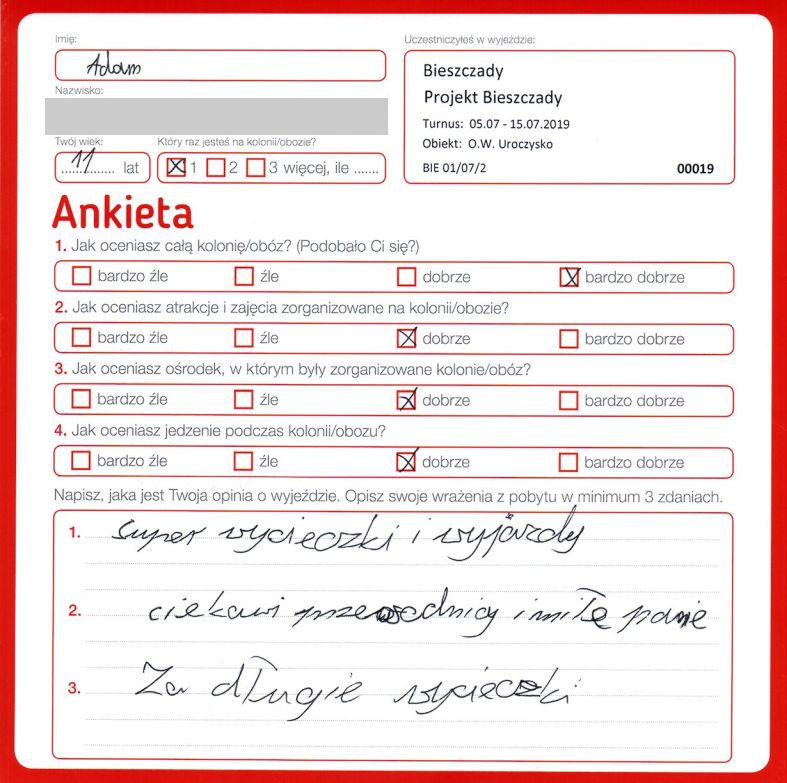 Imię:
Adam
Nazwisko:
Twój wiek:
11 lat
Który raz jesteś na kolonii/obozie?
1 2 3 więcej, ile .......
Uczestniczyłeś w wyjeździe:
Bieszczady
Projekt Bieszczady
Turnus: 05.07 - 15.07.2019
Obiekt: O.W. Uroczysko
BIE 01/07/2 00019
Ankieta
1. Jak oceniasz całą kolonię/obóz? (Podobało Ci się?)
bardzo źle źle dobrze bardzo dobrze
2. Jak oceniasz atrakcje i zajęcia zorganizowane na kolonii/obozie?
bardzo źle źle dobrze bardzo dobrze
3. Jak oceniasz ośrodek, w którym były zorganizowane kolonie/obóz?
bardzo źle źle dobrze bardzo dobrze
4. Jak oceniasz jedzenie podczas kolonii/obozu?
bardzo źle źle dobrze bardzo dobrze
Napisz, jaka jest Twoja opinia o wyjeździe. Opisz swoje wrażenia z pobytu w minimum 3 zdaniach.
1. super wycieczki i wyjazdy
2. ciekawi przewodnicy i miłe panie
3. Za długie wycieczki